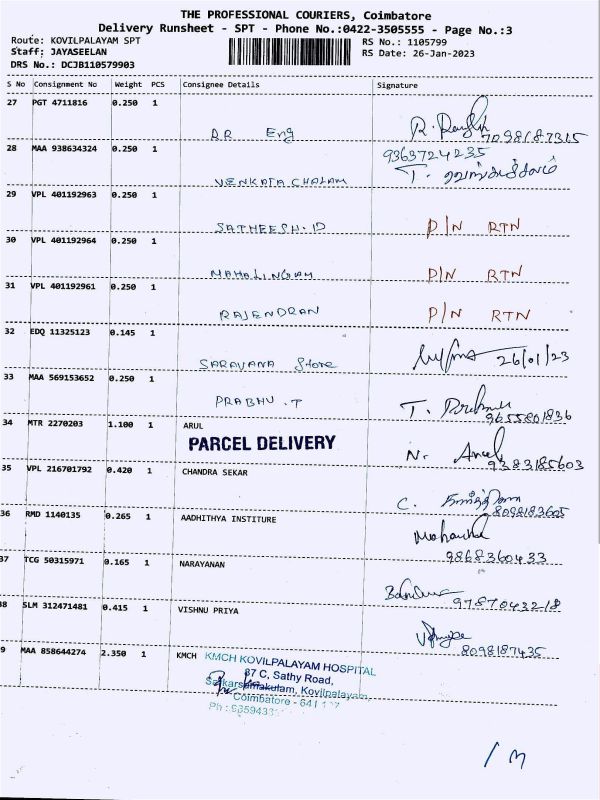 THE PROFESSIONAL COURIERS, Coimbatore
Delivery Runsheet - SPT - Phone No.:0422-3505555 - Page No.:3
Route: KOVILPALAYAM SPT
RS No.: 1105799
Staff: JAYASEELAN
RS Date: 26-Jan-2023
DRS No.: DCJB110579903
S No Consignment No Weight PCS Consignee Details Signature
27 PGT 4711816 0.250 1
D.R Eng R. 7098187315
28 MAA 938634324 0.250 1 9363724235
VENKATACHALAM T.
29 VPL 401192963 0.250 1
SATHEESH.ID D/N RTN
30 VPL 401192964 0.250 1
MAHALINGAM D/N RTN
31 VPL 401192961 0.250 1
RAJENDRAN D/N RTN
32 EDQ 11325123 0.145 1
SARAVANA Store 26/01/23
33 MAA 569153652 0.250 1
PRABHU.T T. 9655801836
34 MTR 2270203 1.100 1 ARUL
PARCEL DELIVERY N. 9383185603
35 VPL 216701792 0.420 1 CHANDRA SEKAR
C. 8098183605
36 RMD 1140135 0.265 1 AADHITHYA INSTITURE
9868360433
37 TCG 50315971 0.165 1 NARAYANAN
9787043218
38 SLM 312471481 0.415 1 VISHNU PRIYA
8098187435
9 MAA 858644274 2.350 1 KMCH KMCH KOVILPALAYAM HOSPITAL
87 C, Sathy Road,
Sarkarsamakulam, Kovilpalayam,
Coimbatore - 641
Ph :